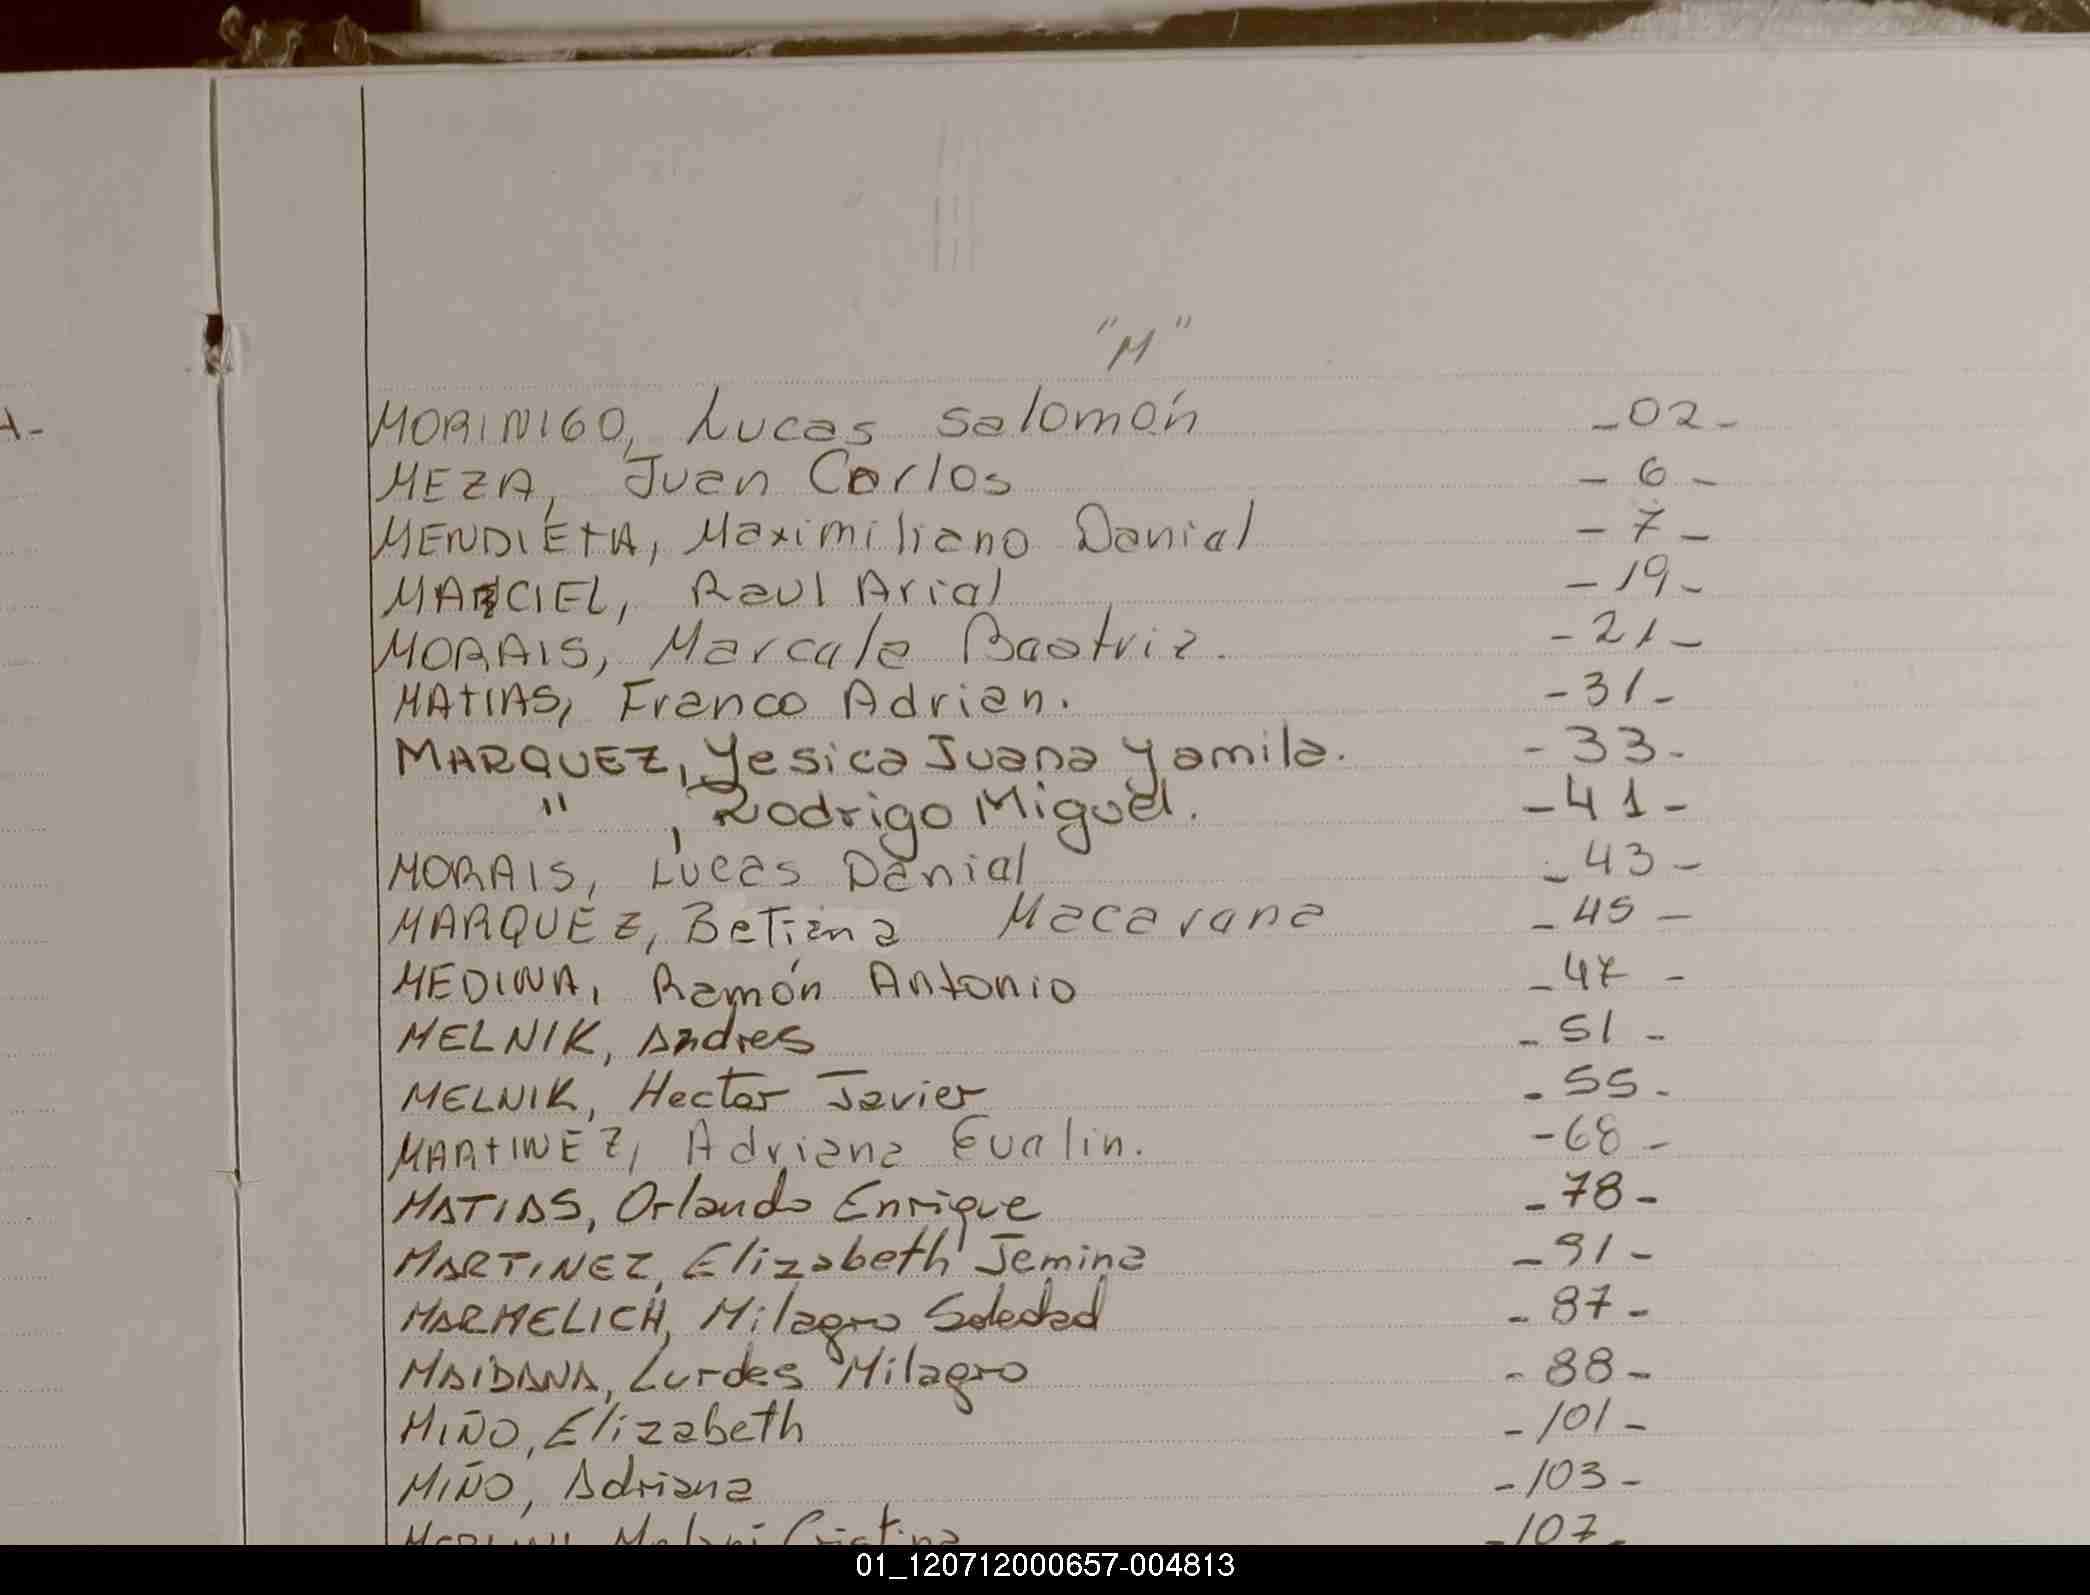 "M"
A-
MORINIGO, Lucas Salomón -02-
MEZA, Juan Carlos - 6 -
MENDIETA, Maximiliano Daniel - 7 -
MACIEL, Raul Ariel -19-
MORAIS, Marcela Beatriz. -21-
MATIAS, Franco Adrian. -31-
MARQUEZ, Yesica Juana Yamila. -33-
" , Rodrigo Miguel. -41-
MORAIS, Lucas Daniel -43-
MARQUEZ, Betiana Macarena -45-
MEDINA, Ramón Antonio -47-
MELNIK, Andres -51-
MELNIK, Hector Javier -55-
MARTINEZ, Adriana Evelin. -68-
MATIAS, Orlando Enrique -78-
MARTINEZ, Elizabeth Jemina -91-
MARMELICH, Milagro Soledad -87-
MAIDANA, Lurdes Milagro -88-
MIÑO, Elizabeth -101-
MIÑO, Adriana -103-
Cristina -107-
01_120712000657-004813